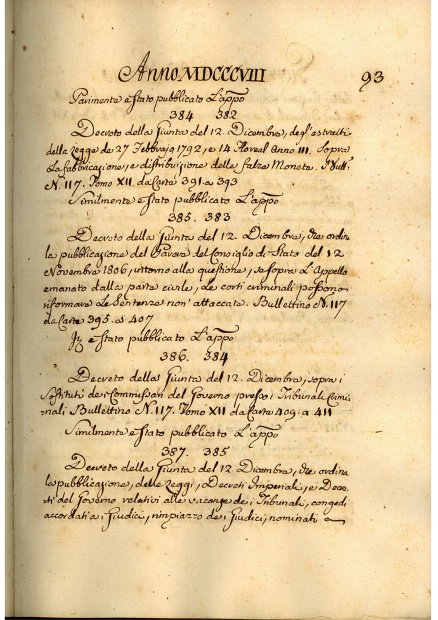 Anno MDCCCVIII 93
Parimente è stato pubblicato L'app̃o
384 382
Decreto della Giunta del 12. Dicembre, degl'estratti
della Legge de 27 Febbraj.o 1792, e 14 Floreal Anno III. Sopra
La fabbricazione, e distribuzione delle false Monete. Bullett.
N. 117. Tomo XII. da Carte 391. a 393
Similmente è stato pubblicato L'app̃o
385. 383
Decreto della Giunta del 12. Dicembre, che ordina
la pubblicazione del Parere del Consiglio di Stato del 12
Novembre 1806, intorno alla questione, se sopra L'Appello
emanato dalla parte civile, Le corti criminali possono
riformare Le Sentenze non' attaccate. Bullettino N. 117
da Carte 395. a 407
It. è stato pubblicato L'app̃o
386. 384
Decreto della Giunta del 12. Dicembre, sopra i
Sostituti dei Commissari del Governo presso i Tribunali Crimi
nali Bullettino N. 117. Tomo XII da Carte 409. a 411
Similmente è stato pubblicato L'app̃o
387. 385
Decreto della Giunta del 12 Dicembre, che ordina
la pubblicazione, delle Leggi, Decreti Imperiali, e Decre
ti del Governo relativi alle vacanze dei Tribunali, congedi
accordati a i Giudici, rimpiazzo de i Giudici, nominati e